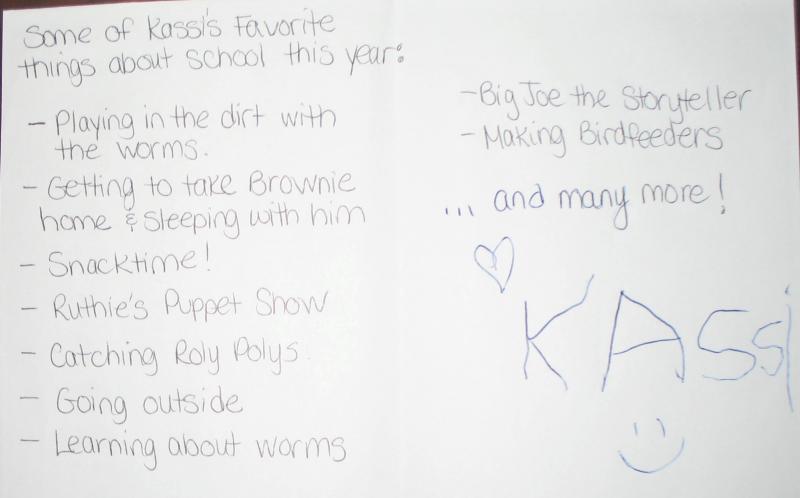 Some of Kassi's Favorite
things about school this year:
- Playing in the dirt with
the worms.
- Getting to take Brownie
home & sleeping with him
- Snacktime!
- Ruthie's Puppet Show
- Catching Roly Polys.
- Going outside
- Learning about worms
- Big Joe the Storyteller
- Making Birdfeeders
... and many more!
KASSi